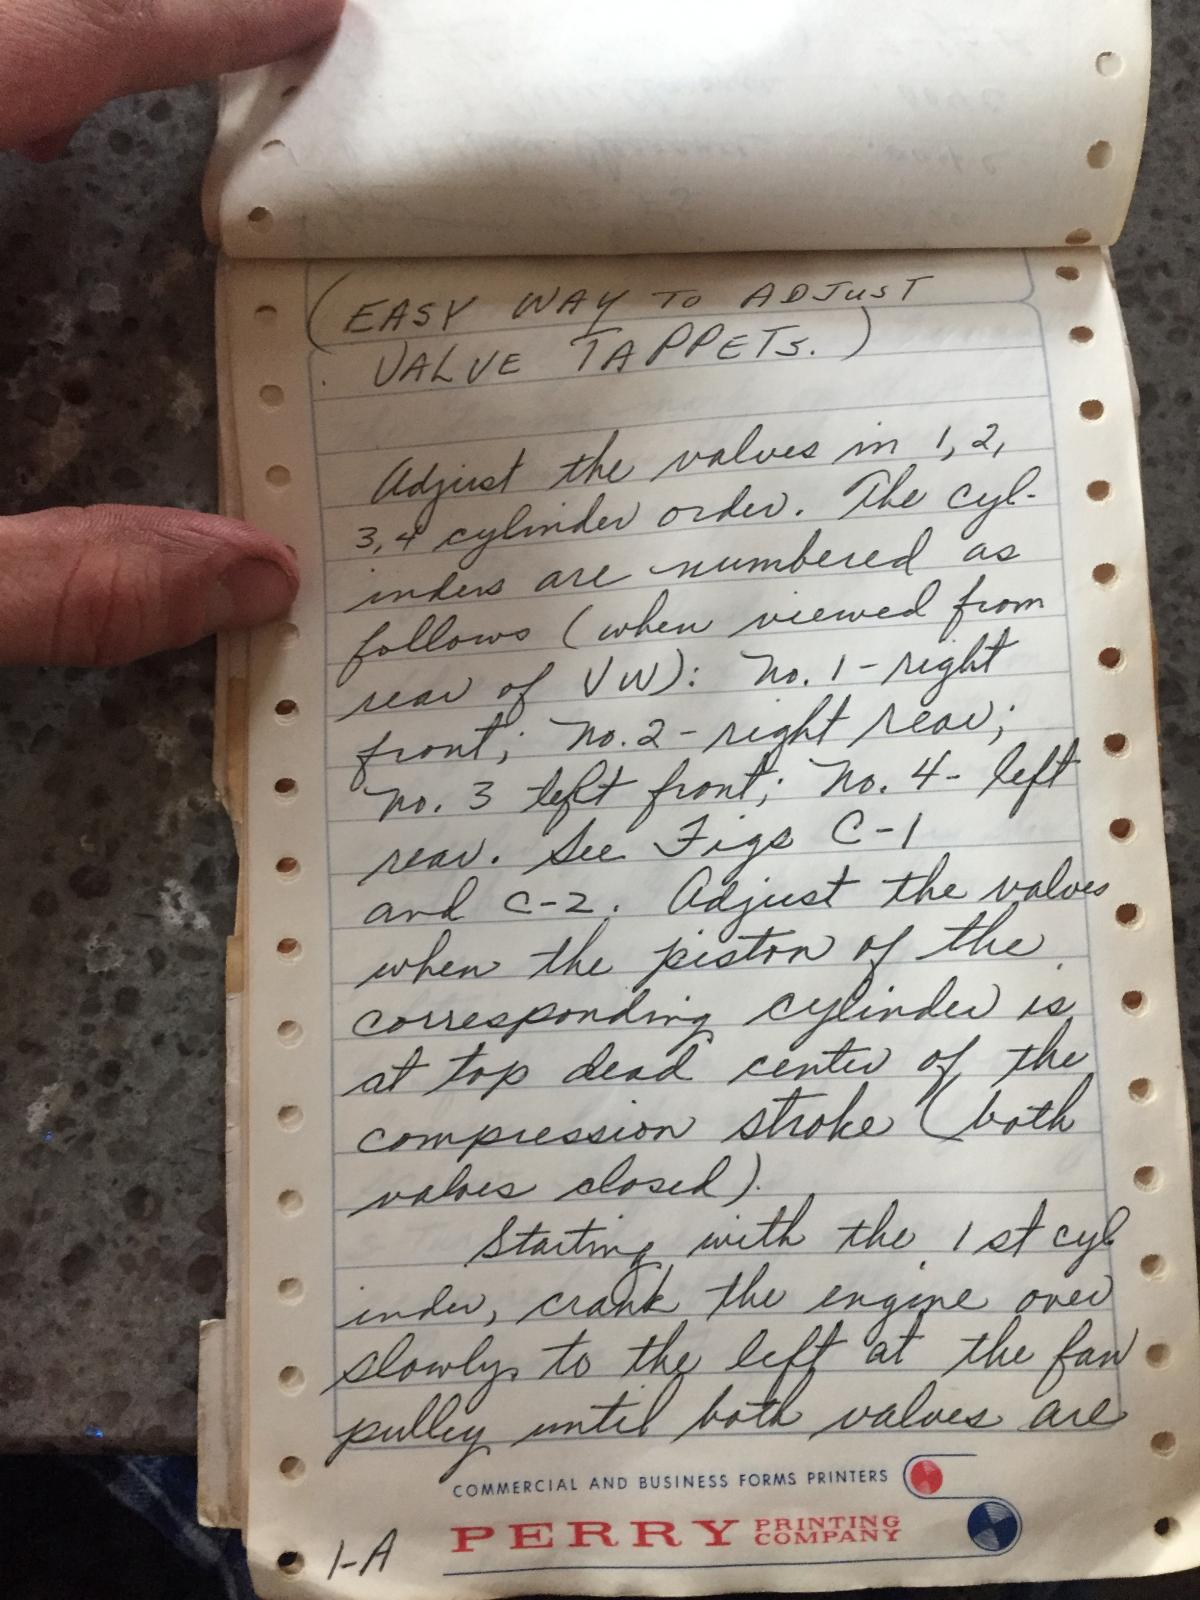 (EASY WAY TO ADJUST
VALVE TAPPETS.)
Adjust the valves in 1, 2,
3, 4 cylinder order. The cyl-
inders are numbered as
follows (when viewed from
rear of VW): No. 1 - right
front; No. 2 - right rear;
No. 3 left front; No. 4 - left
rear. See Figs C-1
and C-2. Adjust the valves
when the piston of the
corresponding cylinder is
at top dead center of the
compression stroke (both
valves closed).
Starting with the 1st cyl
inder, crank the engine over
slowly to the left at the fan
pulley until both valves are
COMMERCIAL AND BUSINESS FORMS PRINTERS
PERRY PRINTING
COMPANY
1-A